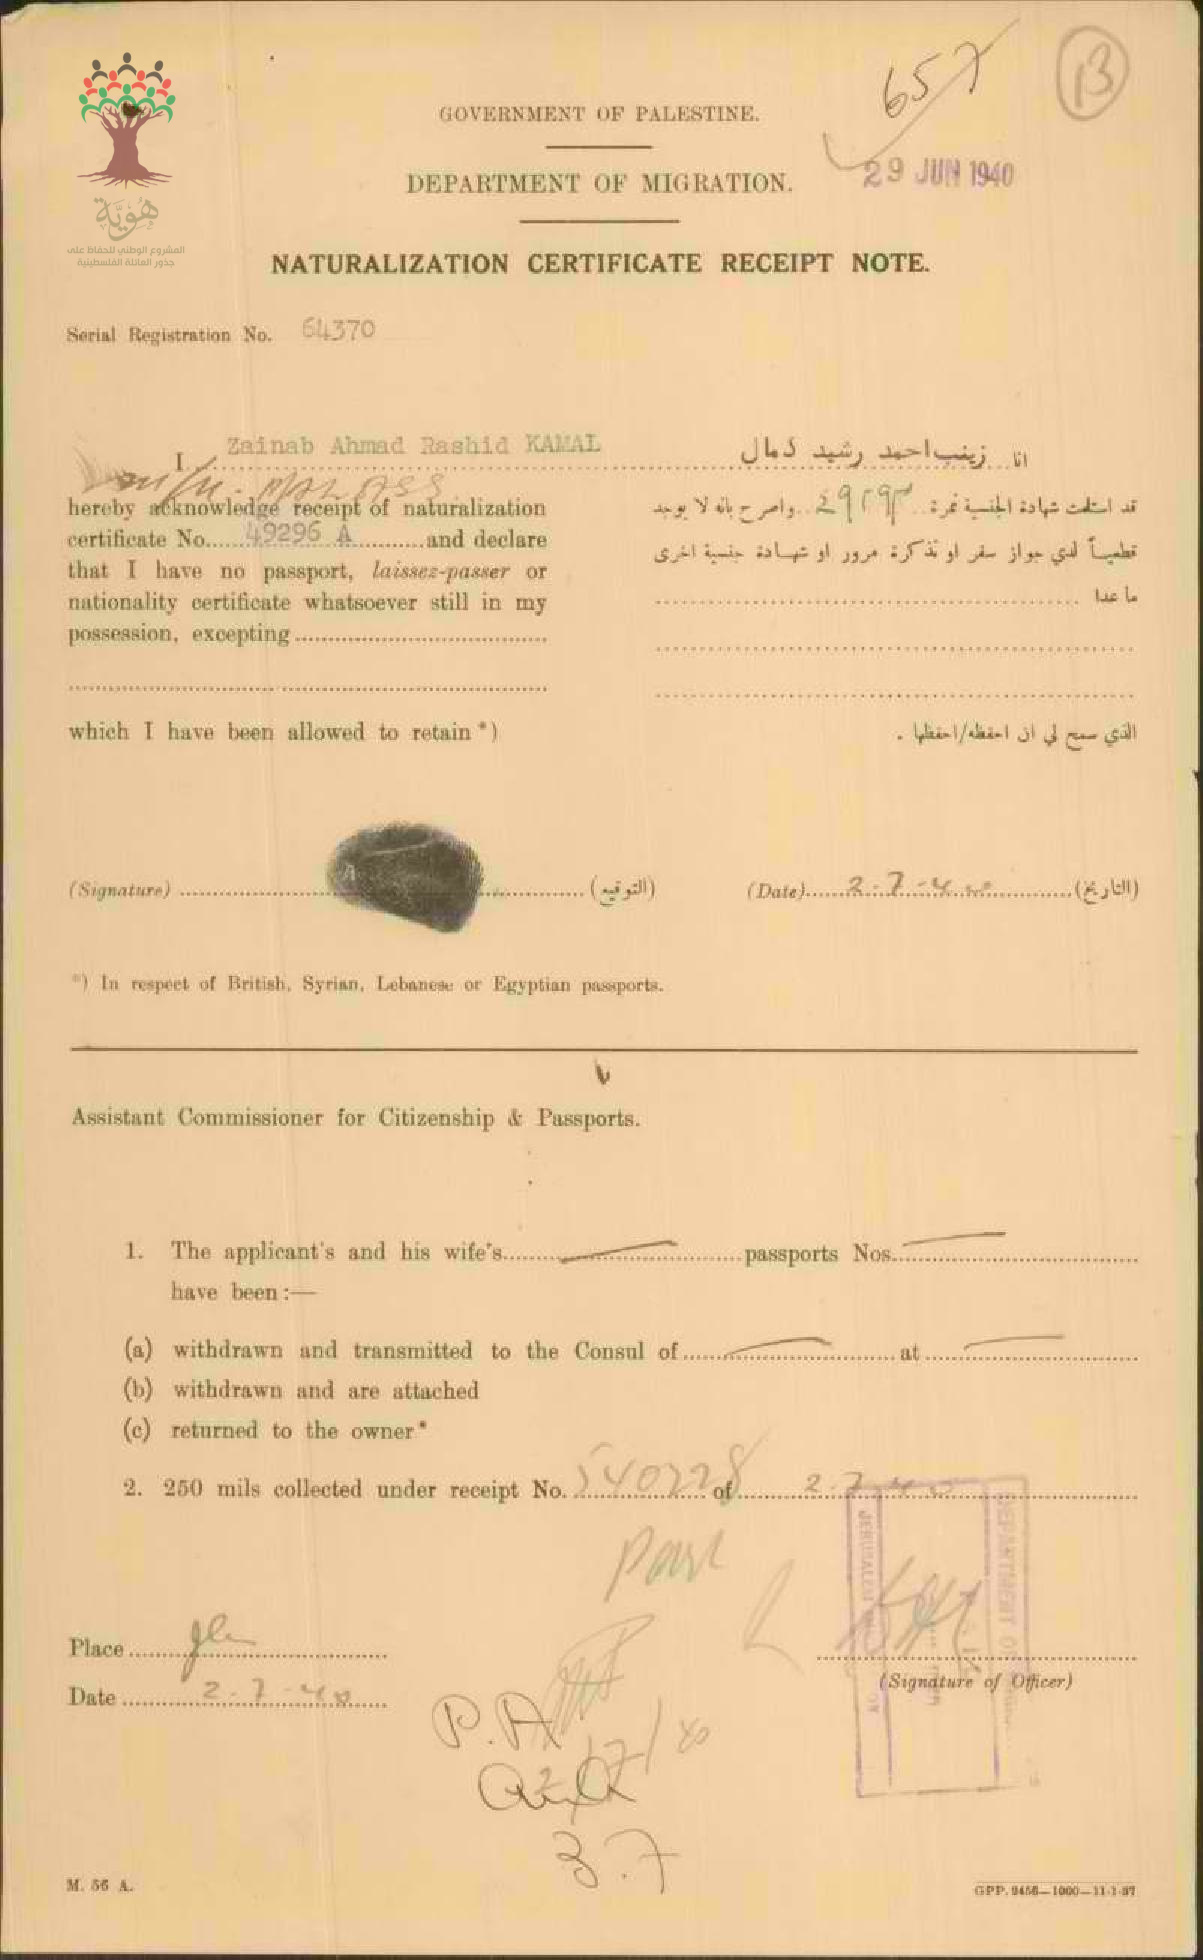 657
B
GOVERNMENT OF PALESTINE.
DEPARTMENT OF MIGRATION.
29 JUN 1940
هُويَّة
المشروع الوطني للحفاظ على
جذور العائلة الفلسطينية
NATURALIZATION CERTIFICATE RECEIPT NOTE.
Serial Registration No. 64370
I Zainab Ahmad Rashid KAMAL
hereby acknowledge receipt of naturalization
certificate No. 49296 A and declare
that I have no passport, laissez-passer or
nationality certificate whatsoever still in my
possession, excepting
which I have been allowed to retain *)
انا زينب احمد رشيد كمال
قد استلمت شهادة الجنسية نمرة واصرح بانه لا يوجد
قطعياً لدي جواز سفر او تذكرة مرور او شهادة جنسية اخرى
ما عدا
الذي سمح لي ان احفظه/احفظها .
(Signature) (التوقيع) (Date) 2-7-40 (التاريخ)
*) In respect of British, Syrian, Lebanese or Egyptian passports.
Assistant Commissioner for Citizenship & Passports.
1. The applicant's and his wife's passports Nos.
have been :—
(a) withdrawn and transmitted to the Consul of at
(b) withdrawn and are attached
(c) returned to the owner *
2. 250 mils collected under receipt No. 540228 of 2.7.40
DEPARTMENT OF
JERUSALEM
Place
Date 2-7-40
(Signature of Officer)
P.A
3.7
M. 56 A.
GPP. 9456—1000—11-1-37